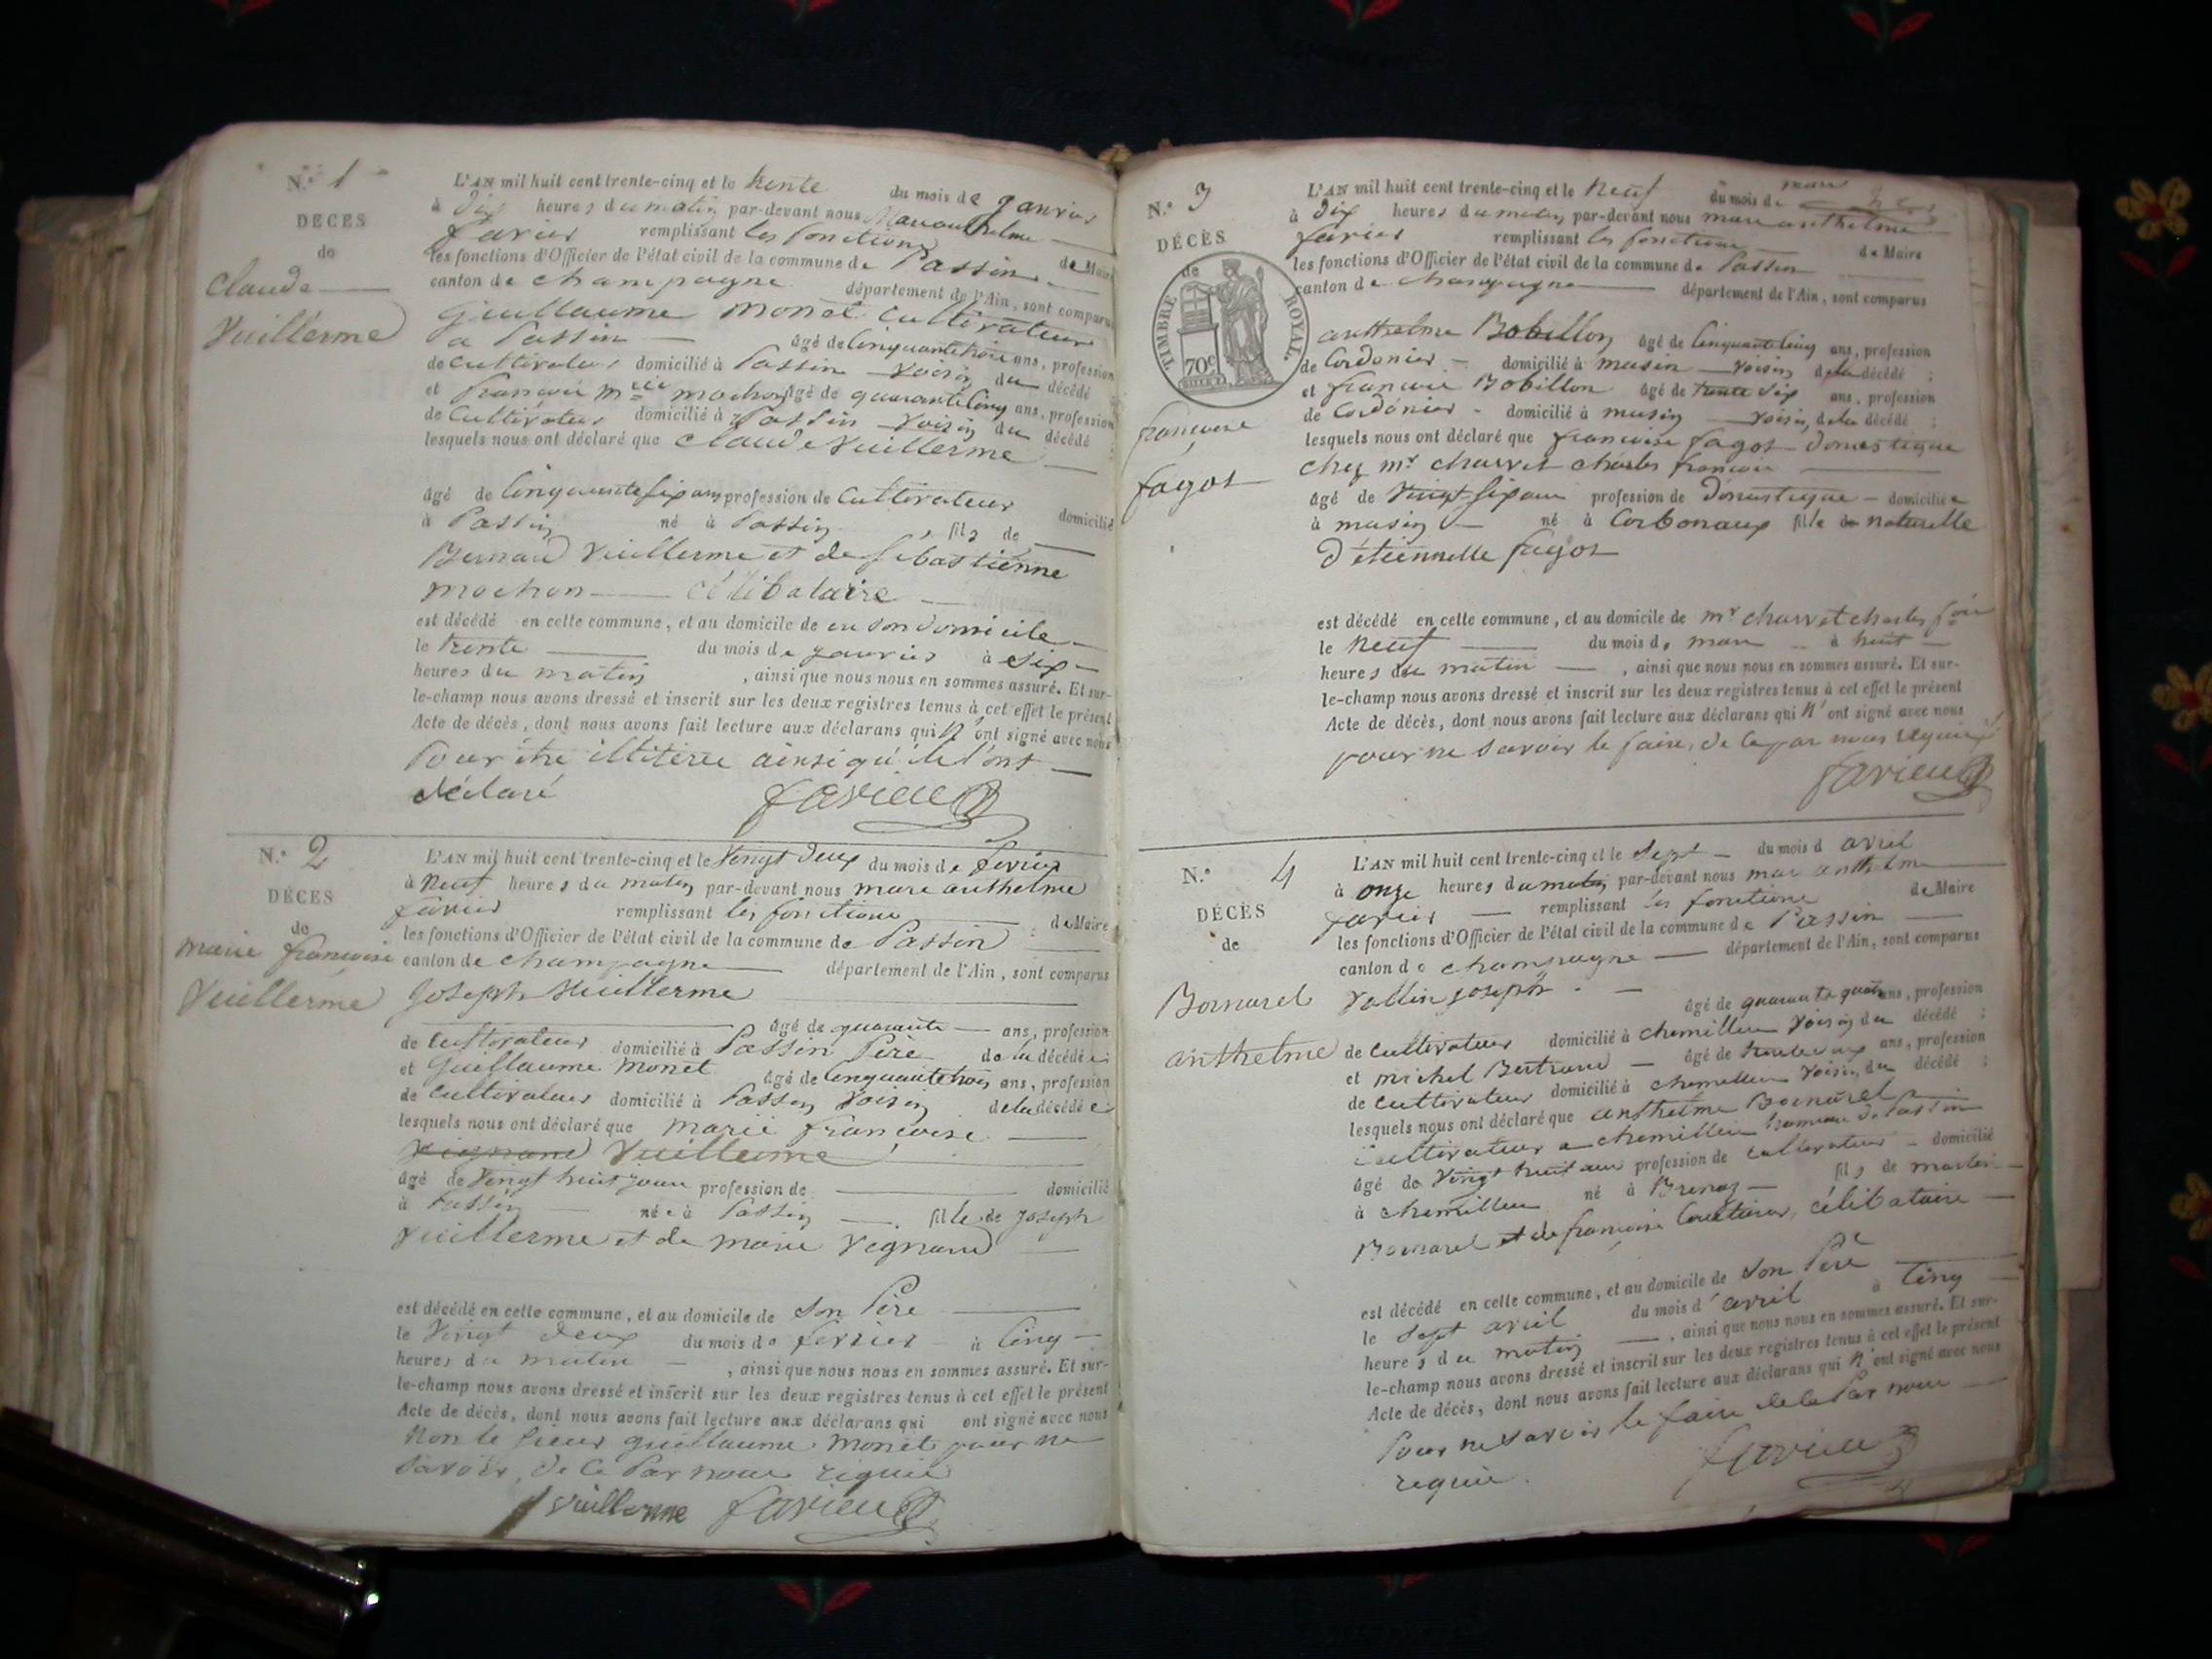 N.° 1
DÉCÈS
de
Claude
Vuillerme
L'AN mil huit cent trente-cinq et le trente du mois de janvier
à dix heures du matin par-devant nous Marc anthelme
favier remplissant les fonctions de Maire
les fonctions d'Officier de l'état civil de la commune de Passin
canton de champagne département de l'Ain, sont comparus
Guillaume monet cultivateur
a Passin âgé de cinquante trois ans, profession
de cultivateur domicilié à Passin voisin du décédé
et françois mochon âgé de quarante cinq ans, profession
de cultivateur domicilié à Passin voisin du décédé
lesquels nous ont déclaré que claude Vuillerme
âgé de cinquante six ans profession de cultivateur domicilié
à Passin né à Passin, fils de
Bernard Vuillerme et de sébastienne
mochon célibataire
est décédé en cette commune, et au domicile de en son domicile
le trente du mois de janvier à six
heures du matin, ainsi que nous nous en sommes assuré. Et sur-
le-champ nous avons dressé et inscrit sur les deux registres tenus à cet effet le présent
Acte de décès, dont nous avons fait lecture aux déclarans qui n'ont signé avec nous
Pour être illitéré ainsi qu'ils l'ont
déclaré favier
N.° 2
DÉCÈS
de
marie francoise
Vuillerme
L'AN mil huit cent trente-cinq et le vingt deux du mois de fevrier
à neuf heures du matin par-devant nous marc anthelme
favier remplissant les fonctions de Maire
les fonctions d'Officier de l'état civil de la commune de Passin
canton de champagne département de l'Ain, sont comparus
Joseph Vuillerme
âgé de quarante ans, profession
de cultivateur domicilié à Passin Père de la décédée
et Guillaume monet âgé de cinquante trois ans, profession
de cultivateur domicilié à Passin voisin de la décédée
lesquels nous ont déclaré que marie francoise
vignand Vuillerme
âgé de vingt huit jours profession de domicilié
à Passin née à Passin, fille de Joseph
Vuillerme et de marie Vignand
est décédé en cette commune, et au domicile de son Père
le vingt deux du mois de fevrier à cinq
heures du matin, ainsi que nous nous en sommes assuré. Et sur-
le-champ nous avons dressé et inscrit sur les deux registres tenus à cet effet le présent
Acte de décès, dont nous avons fait lecture aux déclarans qui ont signé avec nous
Non le sieur guillaume monet pour ne
savoir, de ce Par nous requis
Vuillerme favier
N.° 3
DÉCÈS
de
TIMBRE ROYAL.
70c
francoise
fagot
L'AN mil huit cent trente-cinq et le neuf du mois de mars
à dix heures du matin par-devant nous marc anthelme
favier remplissant les fonctions de Maire
les fonctions d'Officier de l'état civil de la commune de Passin
canton de champagne département de l'Ain, sont comparus
anthelme Bobillon âgé de cinquante cinq ans, profession
de Cordonier domicilié à musin voisin de la décédé ;
et francois Bobillon âgé de trente six ans, profession
de Cordonier domicilié à musin voisin de la décédé ;
lesquels nous ont déclaré que francoise fagot domestique
chez mr charvet charles francois
âgé de vingt six ans profession de domestique domiciliée
à musin né à Corbonaux fille de naturelle
d'étiennette fagot
est décédé en cette commune, et au domicile de mr charvet charles fçois
le neuf du mois de mars à huit
heures du matin, ainsi que nous nous en sommes assuré. Et sur-
le-champ nous avons dressé et inscrit sur les deux registres tenus à cet effet le présent
Acte de décès, dont nous avons fait lecture aux déclarans qui n'ont signé avec nous
pour ne savoir le faire, de ce par nous requis
favier
N.° 4
DÉCÈS
de
Bornarel
anthelme
L'AN mil huit cent trente-cinq et le sept du mois d avril
à onze heures du matin par-devant nous marc anthelme
favier remplissant les fonctions de Maire
les fonctions d'Officier de l'état civil de la commune de Passin
canton de champagne département de l'Ain, sont comparus
Vallin joseph âgé de quarante quatre ans, profession
de cultivateur domicilié à chemillieu voisin du décédé ;
et michel Bertrand âgé de trente deux ans, profession
de cultivateur domicilié à chemillieu voisin du décédé ;
lesquels nous ont déclaré que anthelme Bornarel
cultivateur a chemillieu hameau de Passin
âgé de vingt huit ans profession de cultivateur domicilié
à chemillieu né à Brenaz fils de martin
Bornarel et de francoise célibataire
est décédé en cette commune, et au domicile de son Père
le sept avril du mois d'avril à cinq
heures du matin, ainsi que nous nous en sommes assuré. Et sur-
le-champ nous avons dressé et inscrit sur les deux registres tenus à cet effet le présent
Acte de décès, dont nous avons fait lecture aux déclarans qui n'ont signé avec nous
Pour ne savoir le faire de ce Par nous
requis. favier